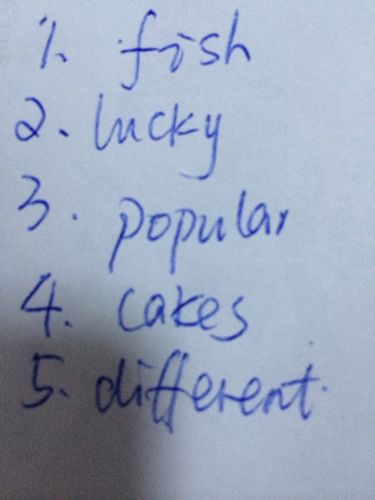 1. fish
2. lucky
3. popular
4. cakes
5. different.